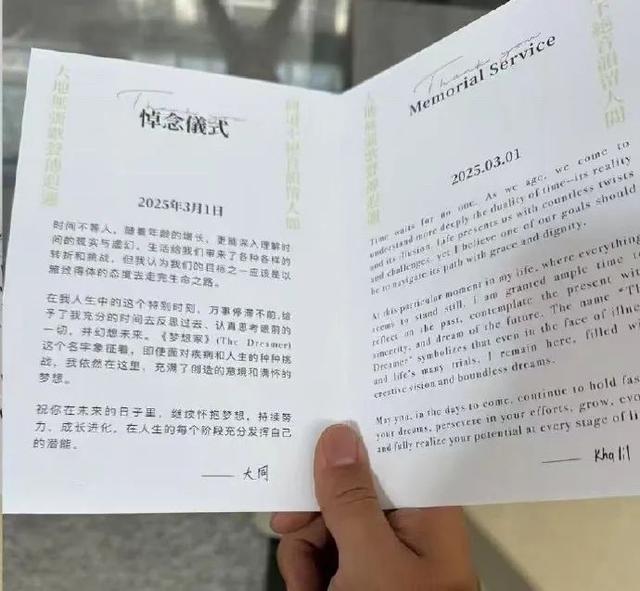 Thank you
悼念儀式
2025年3月1日
时间不等人，随着年龄的增长，更能深入理解时
间的现实与虚幻，生活给我们带来了各种各样的
转折和挑战，但我认为我们的目标之一应该是以
雅致得体的态度去走完生命之路。
在我人生中的这个特别时刻，万事停滞不前，给
予了我充分的时间去反思过去、认真思考眼前的
一切，并幻想未来。《梦想家》(The Dreamer)
这个名字象征着，即便面对疾病和人生的种种挑
战，我依然在这里，充满了创造的意境和情怀的
梦想。
祝你在未来的日子里，继续怀抱梦想，持续努
力、成长进化，在人生的每个阶段充分发挥自己
的潜能。
—— 大同
Thank you
Memorial Service
2025.03.01
Time waits for no one. As we age, we come to
understand more deeply the duality of time—its reality
and its illusion. Life presents us with countless twists
and challenges, yet I believe one of our goals should
be to navigate its path with grace and dignity.
At this particular moment in my life, where everything
seems to stand still, I am granted ample time to
reflect on the past, contemplate the present with
sincerity, and dream of the future. The name "The
Dreamer" symbolizes that even in the face of illness
and life's many trials, I remain here, filled with
creative vision and boundless dreams.
May you, in the days to come, continue to hold fast
your dreams, persevere in your efforts, grow,
and fully realize your potential at every stage of
—— Khalil